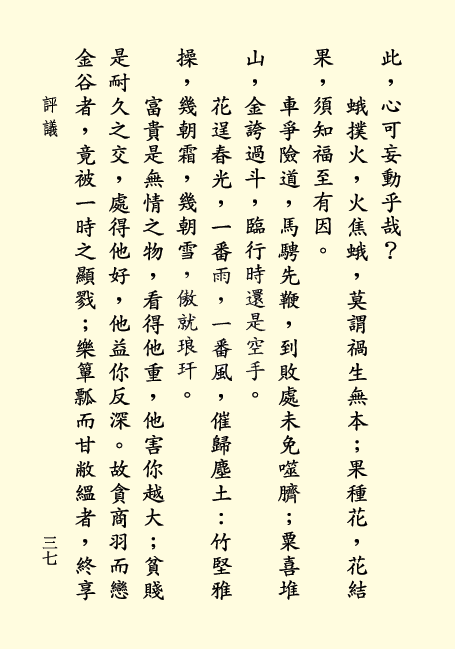 此，心可妄動乎哉？
蛾撲火，火焦蛾，莫謂禍生無本；果種花，花結
果，須知福至有因。
車爭險道，馬騁先鞭，到敗處未免噬臍；粟喜堆
山，金誇過斗，臨行時還是空手。
花逞春光，一番雨，一番風，催歸塵土：竹堅雅
操，幾朝霜，幾朝雪，傲就琅玕。
富貴是無情之物，看得他重，他害你越大；貧賤
是耐久之交，處得他好，他益你反深。故貪商羽而戀
金谷者，竟被一時之顯戮；樂簞瓢而甘敝縕者，終享
評議
三七